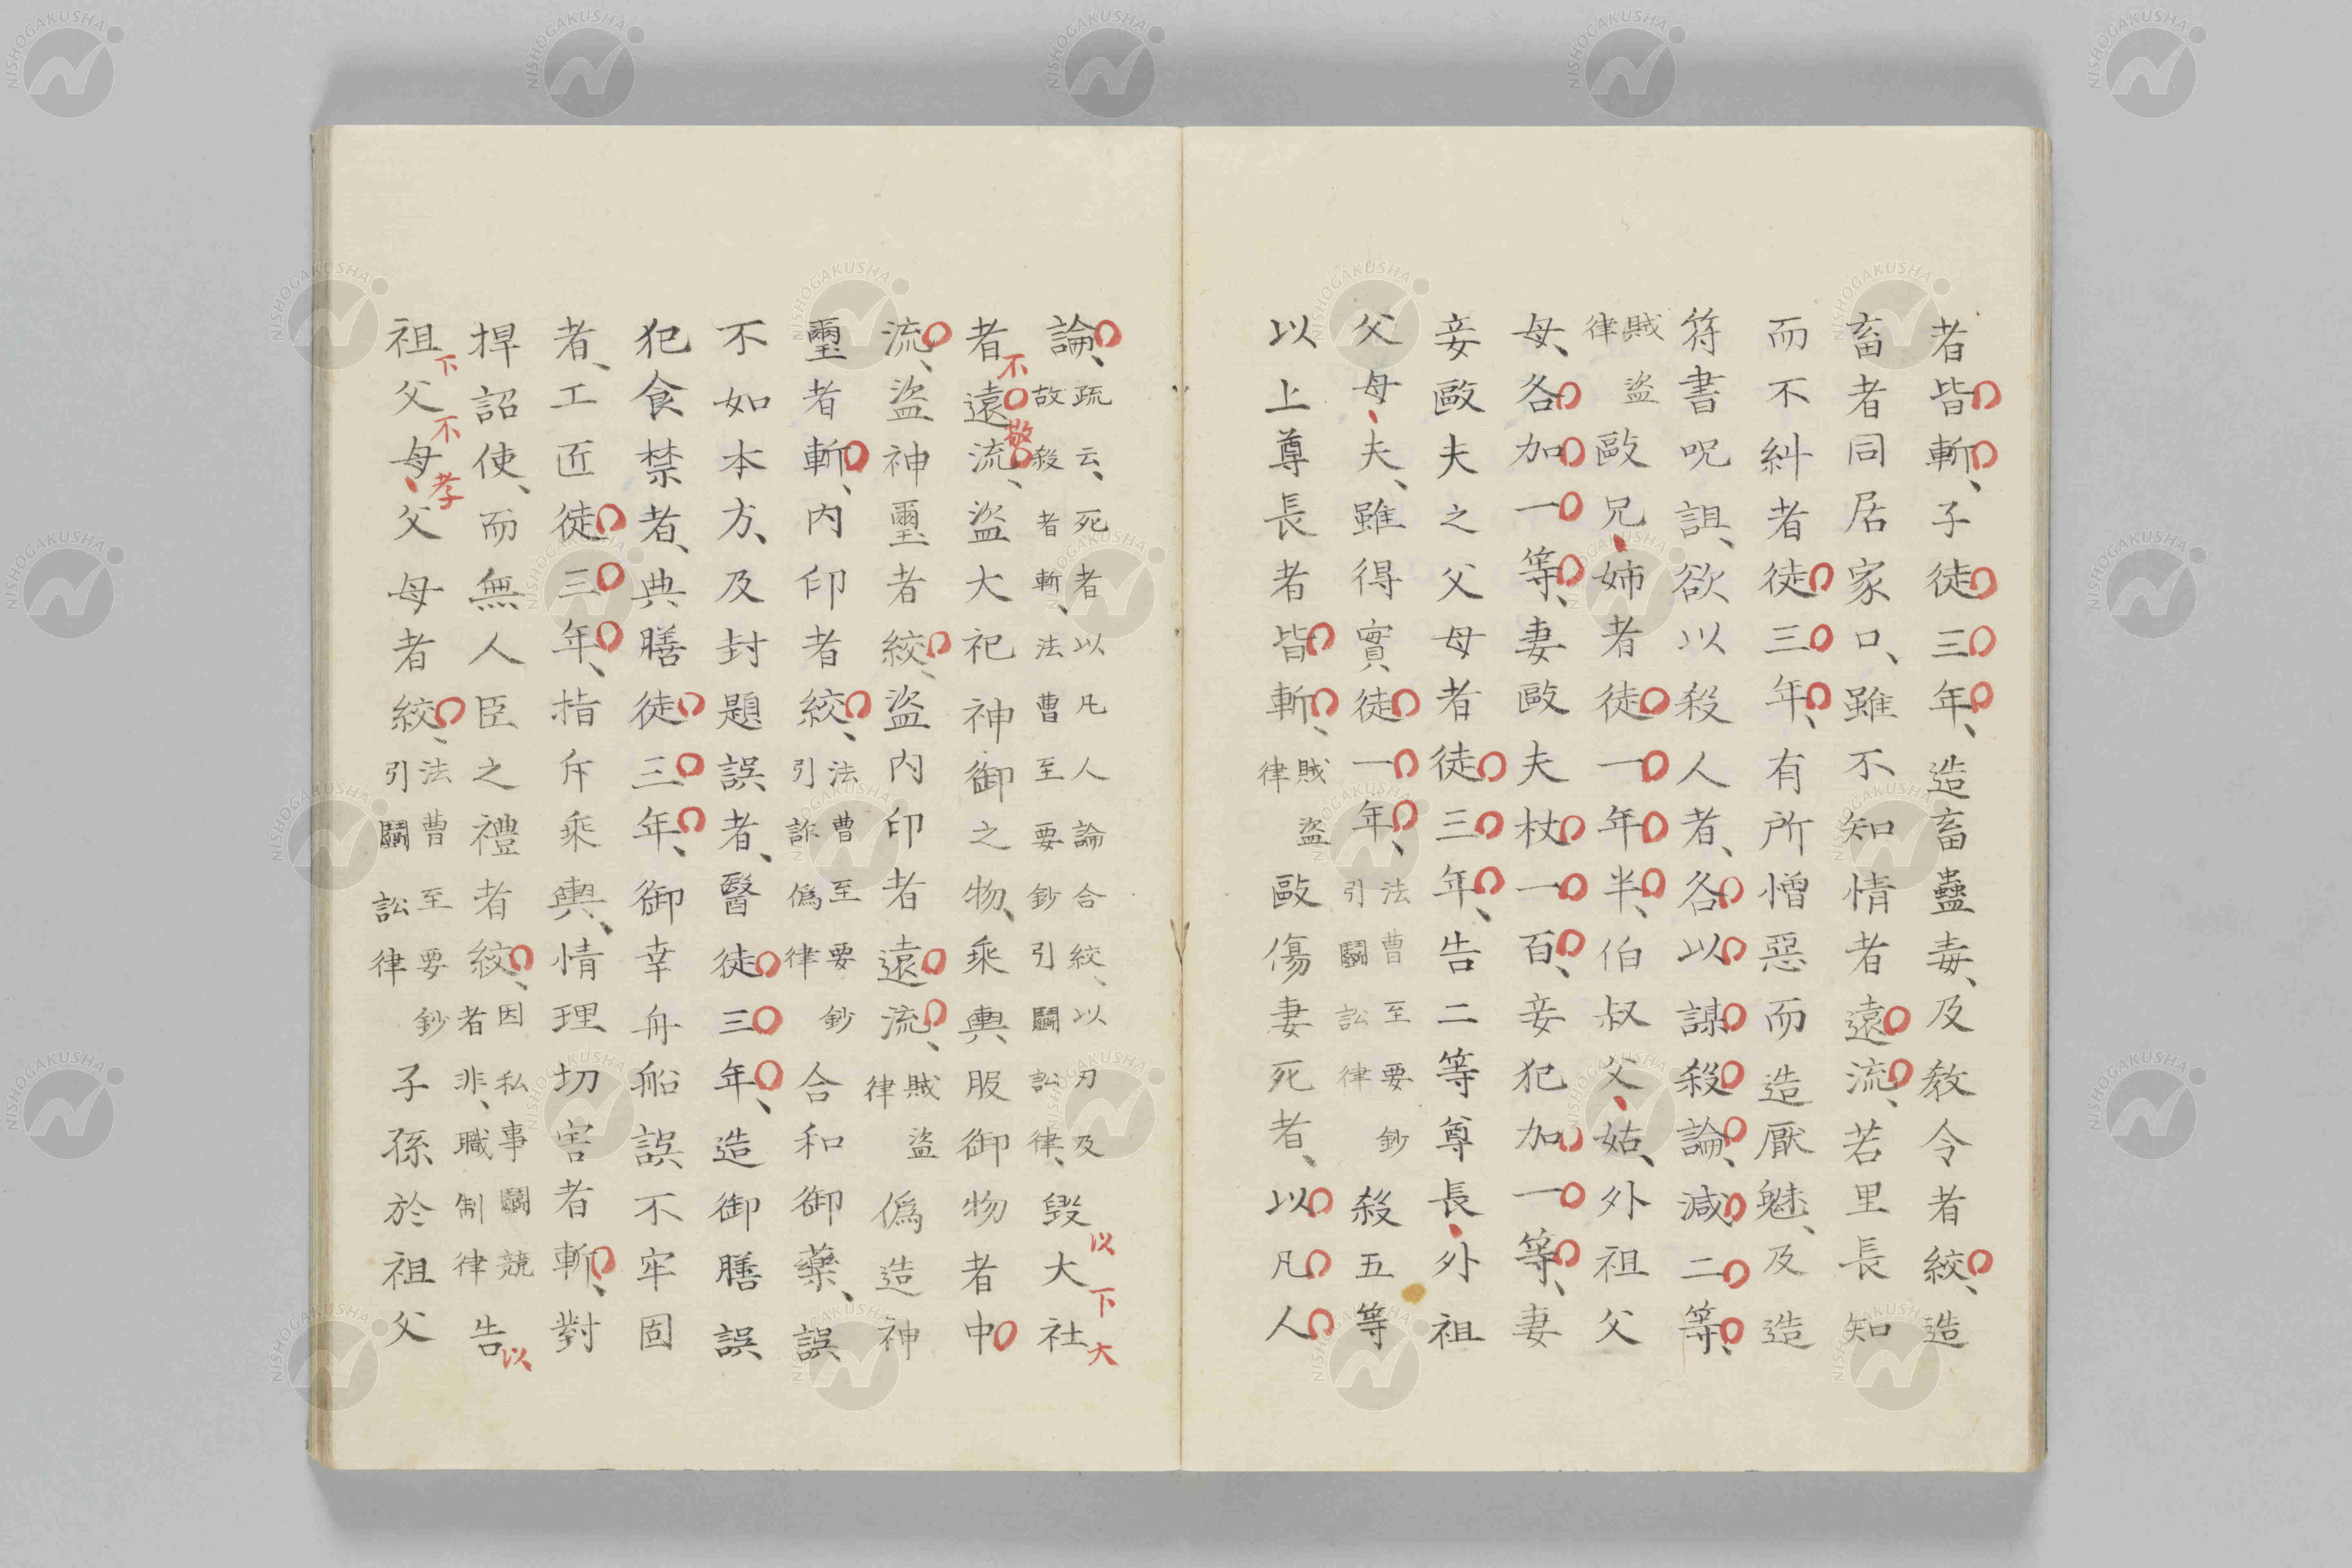 者皆斬、子徒三年、造畜蠱毒、及教令者絞、造
畜者同居家口、雖不知情者遠流、若里長知
而不糾者徒三年、有所憎惡而造厭魅、及造
符書呪詛、欲以殺人者、各以謀殺論、減二等、
賊盜律 毆兄、姉者徒一年半、伯叔父、姑、外祖父
母、各加一等、妻毆夫杖一百、妾犯加一等、妻
妾毆夫之父母者徒三年、告二等尊長、外祖
父母、夫、雖得實徒一年、法曹至要鈔引鬪訟律 殺五等
以上尊長者皆斬、賊盜律 毆傷妻死者、以凡人
論、疏云、死者以凡人論合絞、以刃及故殺者斬、法曹至要鈔引鬪訟律、毀大社
以下大
者遠流、盜大祀神御之物、乘輿服御物者中
不敬
流、盜神璽者絞、盜內印者遠流、賊盜律 僞造神
璽者斬、內印者絞、法曹至要鈔引詐僞律 合和御藥、誤
不如本方、及封題誤者、醫徒三年、造御膳誤
犯食禁者、典膳徒三年、御幸舟船誤不牢固
者、工匠徒三年、指斥乘輿、情理切害者斬、對
捍詔使、而無人臣之禮者絞、因私事鬪競者非、職制律 告
以
祖父母、父母者絞、法曹至要鈔引鬪訟律 子孫於祖父
下不孝
NISHOGAKUSHA